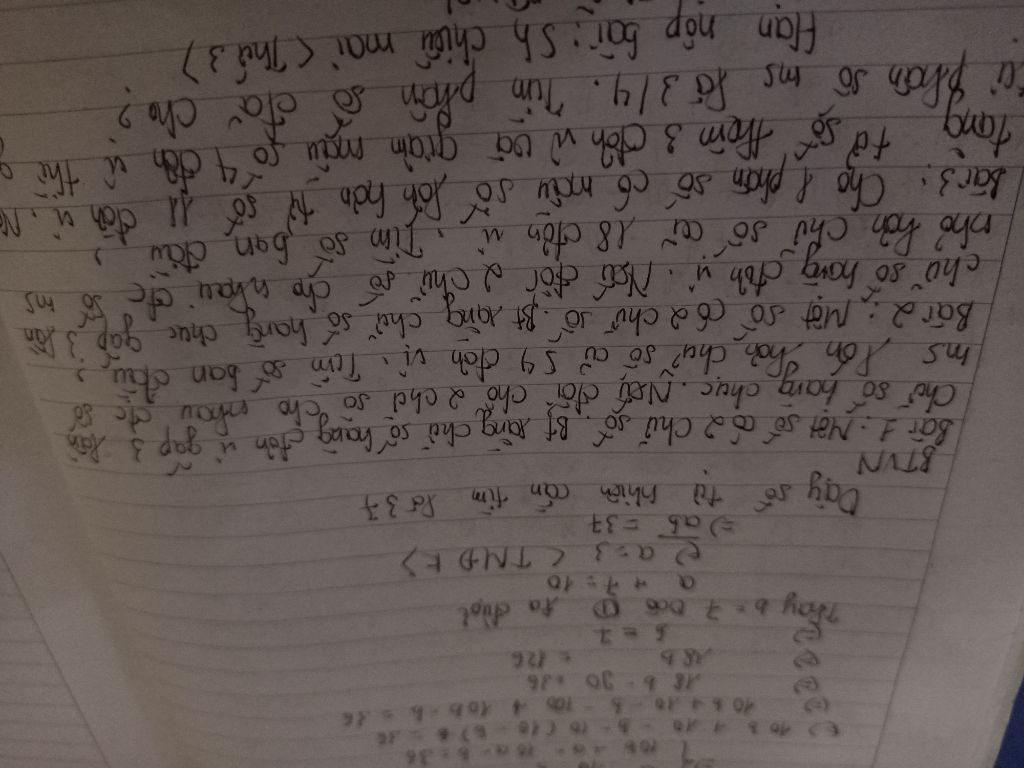 10b + a - 10a - b = 36
(=) 10b + 10 - b - 10(10 - b) - b = 36
(=) 10b + 10 - b - 100 + 10b - b = 36
(=) 18b - 90 = 36
(=) 18b = 126
(=) b = 7
Thay b = 7 vào ① ta được
a + 7 = 10
(=) a = 3 < TMĐK >
=) ab = 37
Dậy số tự nhiên cần tìm là 37
BTVN
Bài 1: Một số có 2 chữ số. Bt rằng chữ số hàng đơn vị gấp 3 lần
chữ số hàng chục. Nếu đổi chỗ 2 chữ số cho nhau đc số
ms lớn hơn chữ số cũ 54 đơn vị. Tìm số ban đầu?
Bài 2: Một số có 2 chữ số. Bt rằng chữ số hàng chục gấp 3 lần
chữ số hàng đơn vị. Nếu đổi 2 chữ số cho nhau đc số ms
nhỏ hơn chữ số cũ 18 đơn vị. Tìm số ban đầu?
Bài 3: Cho 1 phân số có mẫu số lớn hơn tử số 11 đơn vị. Nếu
tăng tử số thêm 3 đơn vị và giảm mẫu số 4 đơn vị thì
phân số ms là 3/4. Tìm phân số đã cho?
Hạn nộp bài: 5h chiều mai < Thứ 3 >